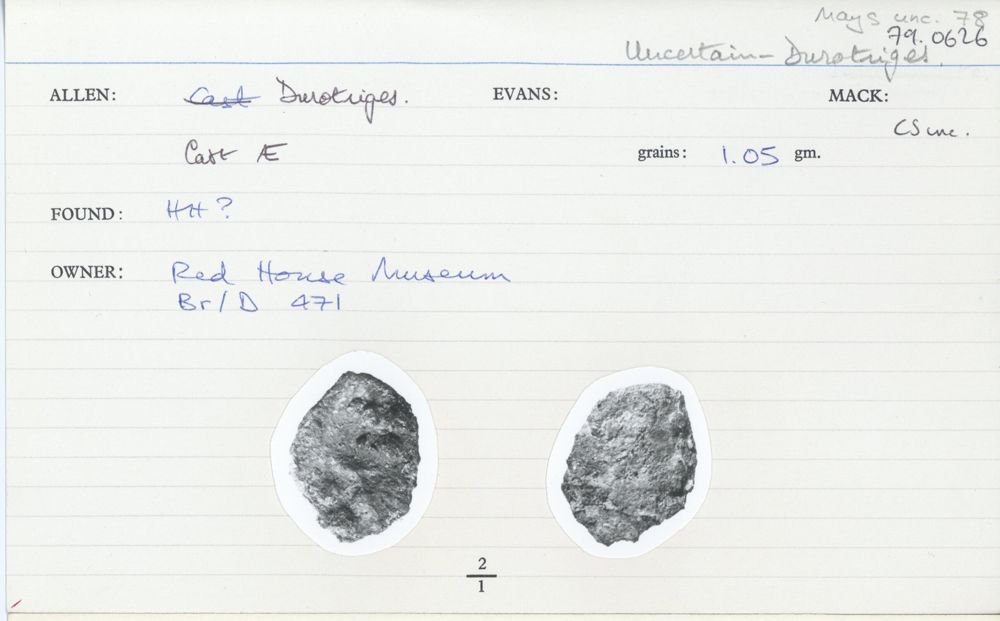 Mays unc. 78
79.0626
Uncertain - Durotriges.
ALLEN: Cast Durotriges. EVANS: MACK:
CS unc.
Cast Æ grains: 1.05 gm.
FOUND: HH?
OWNER: Red House Museum
Br/D 471
2
1